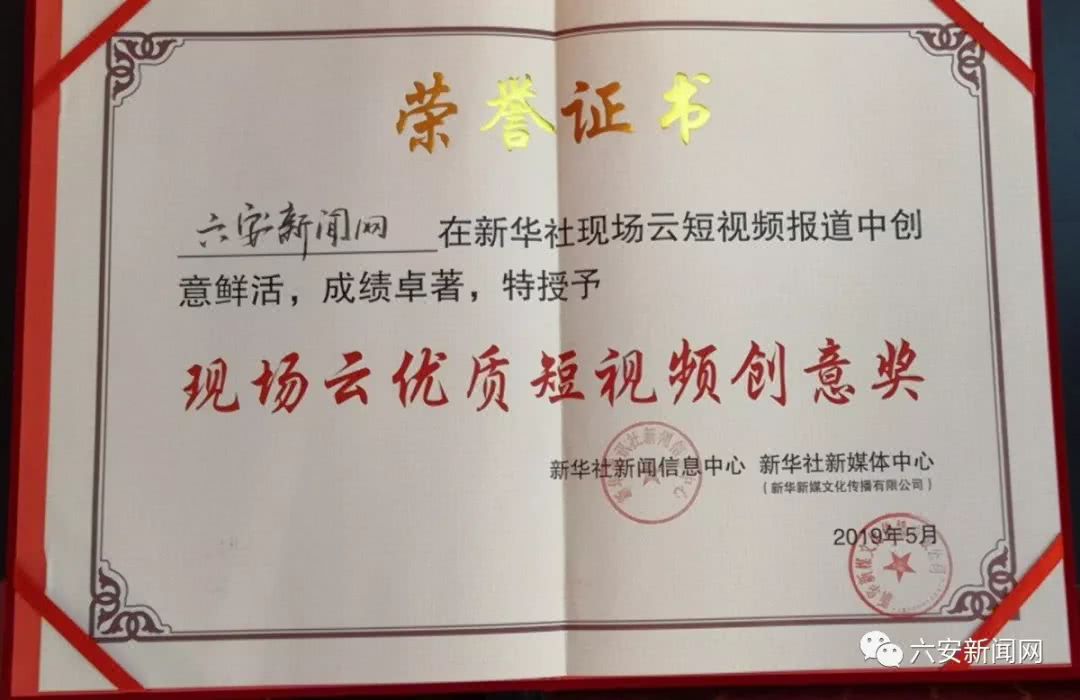 荣誉证书
六安新闻网 在新华社现场云短视频报道中创
意鲜活，成绩卓著，特授予
现场云优质短视频创意奖
新华社新闻信息中心 新华社新媒体中心
（新华新媒文化传播有限公司）
2019年5月
六安新闻网